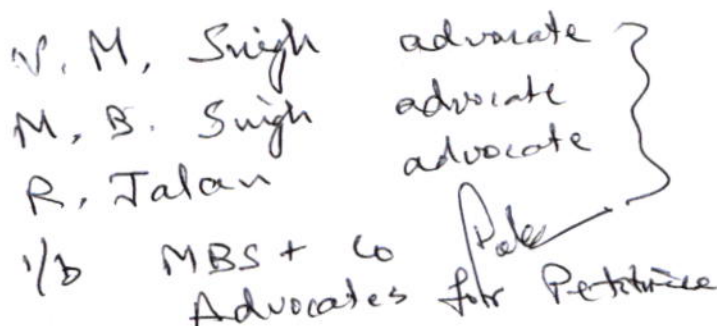 V. M. Singh advocate
M. B. Singh advocate
R. Jalan advocate
i/b MBS + Co
Advocates for Petitioner